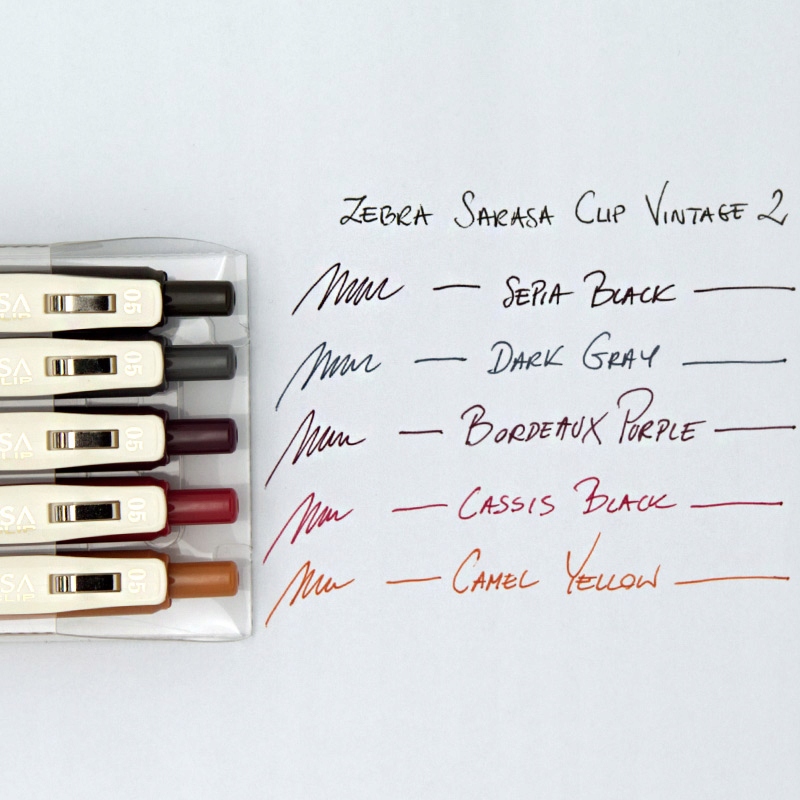 ZEBRA SARASA CLIP VINTAGE 2
SEPIA BLACK
DARK GRAY
BORDEAUX PURPLE
CASSIS BLACK
CAMEL YELLOW
SA
CLIP
05
SA
CLIP
05
05
SA
CLIP
05
SA
CLIP
05